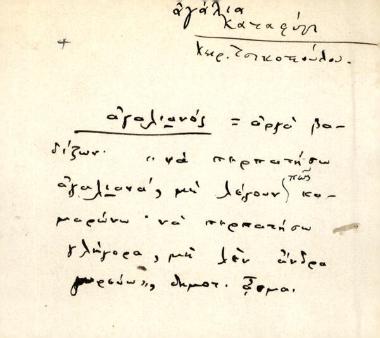 ἀγάλια
καταφύγι
Χειρ. Τσικοπούλου.
ἀγαλιανός = ἀργὰ βα-
δίζων. "νὰ περπατήσω
ἀγαλιανά, μὲ λέγουν πῶς κα-
μαρώνω· νὰ περπατήσω
γλήγορα, μὲ λὲν ἄνδρα
γυρεύω", δημοτ. ᾆσμα.